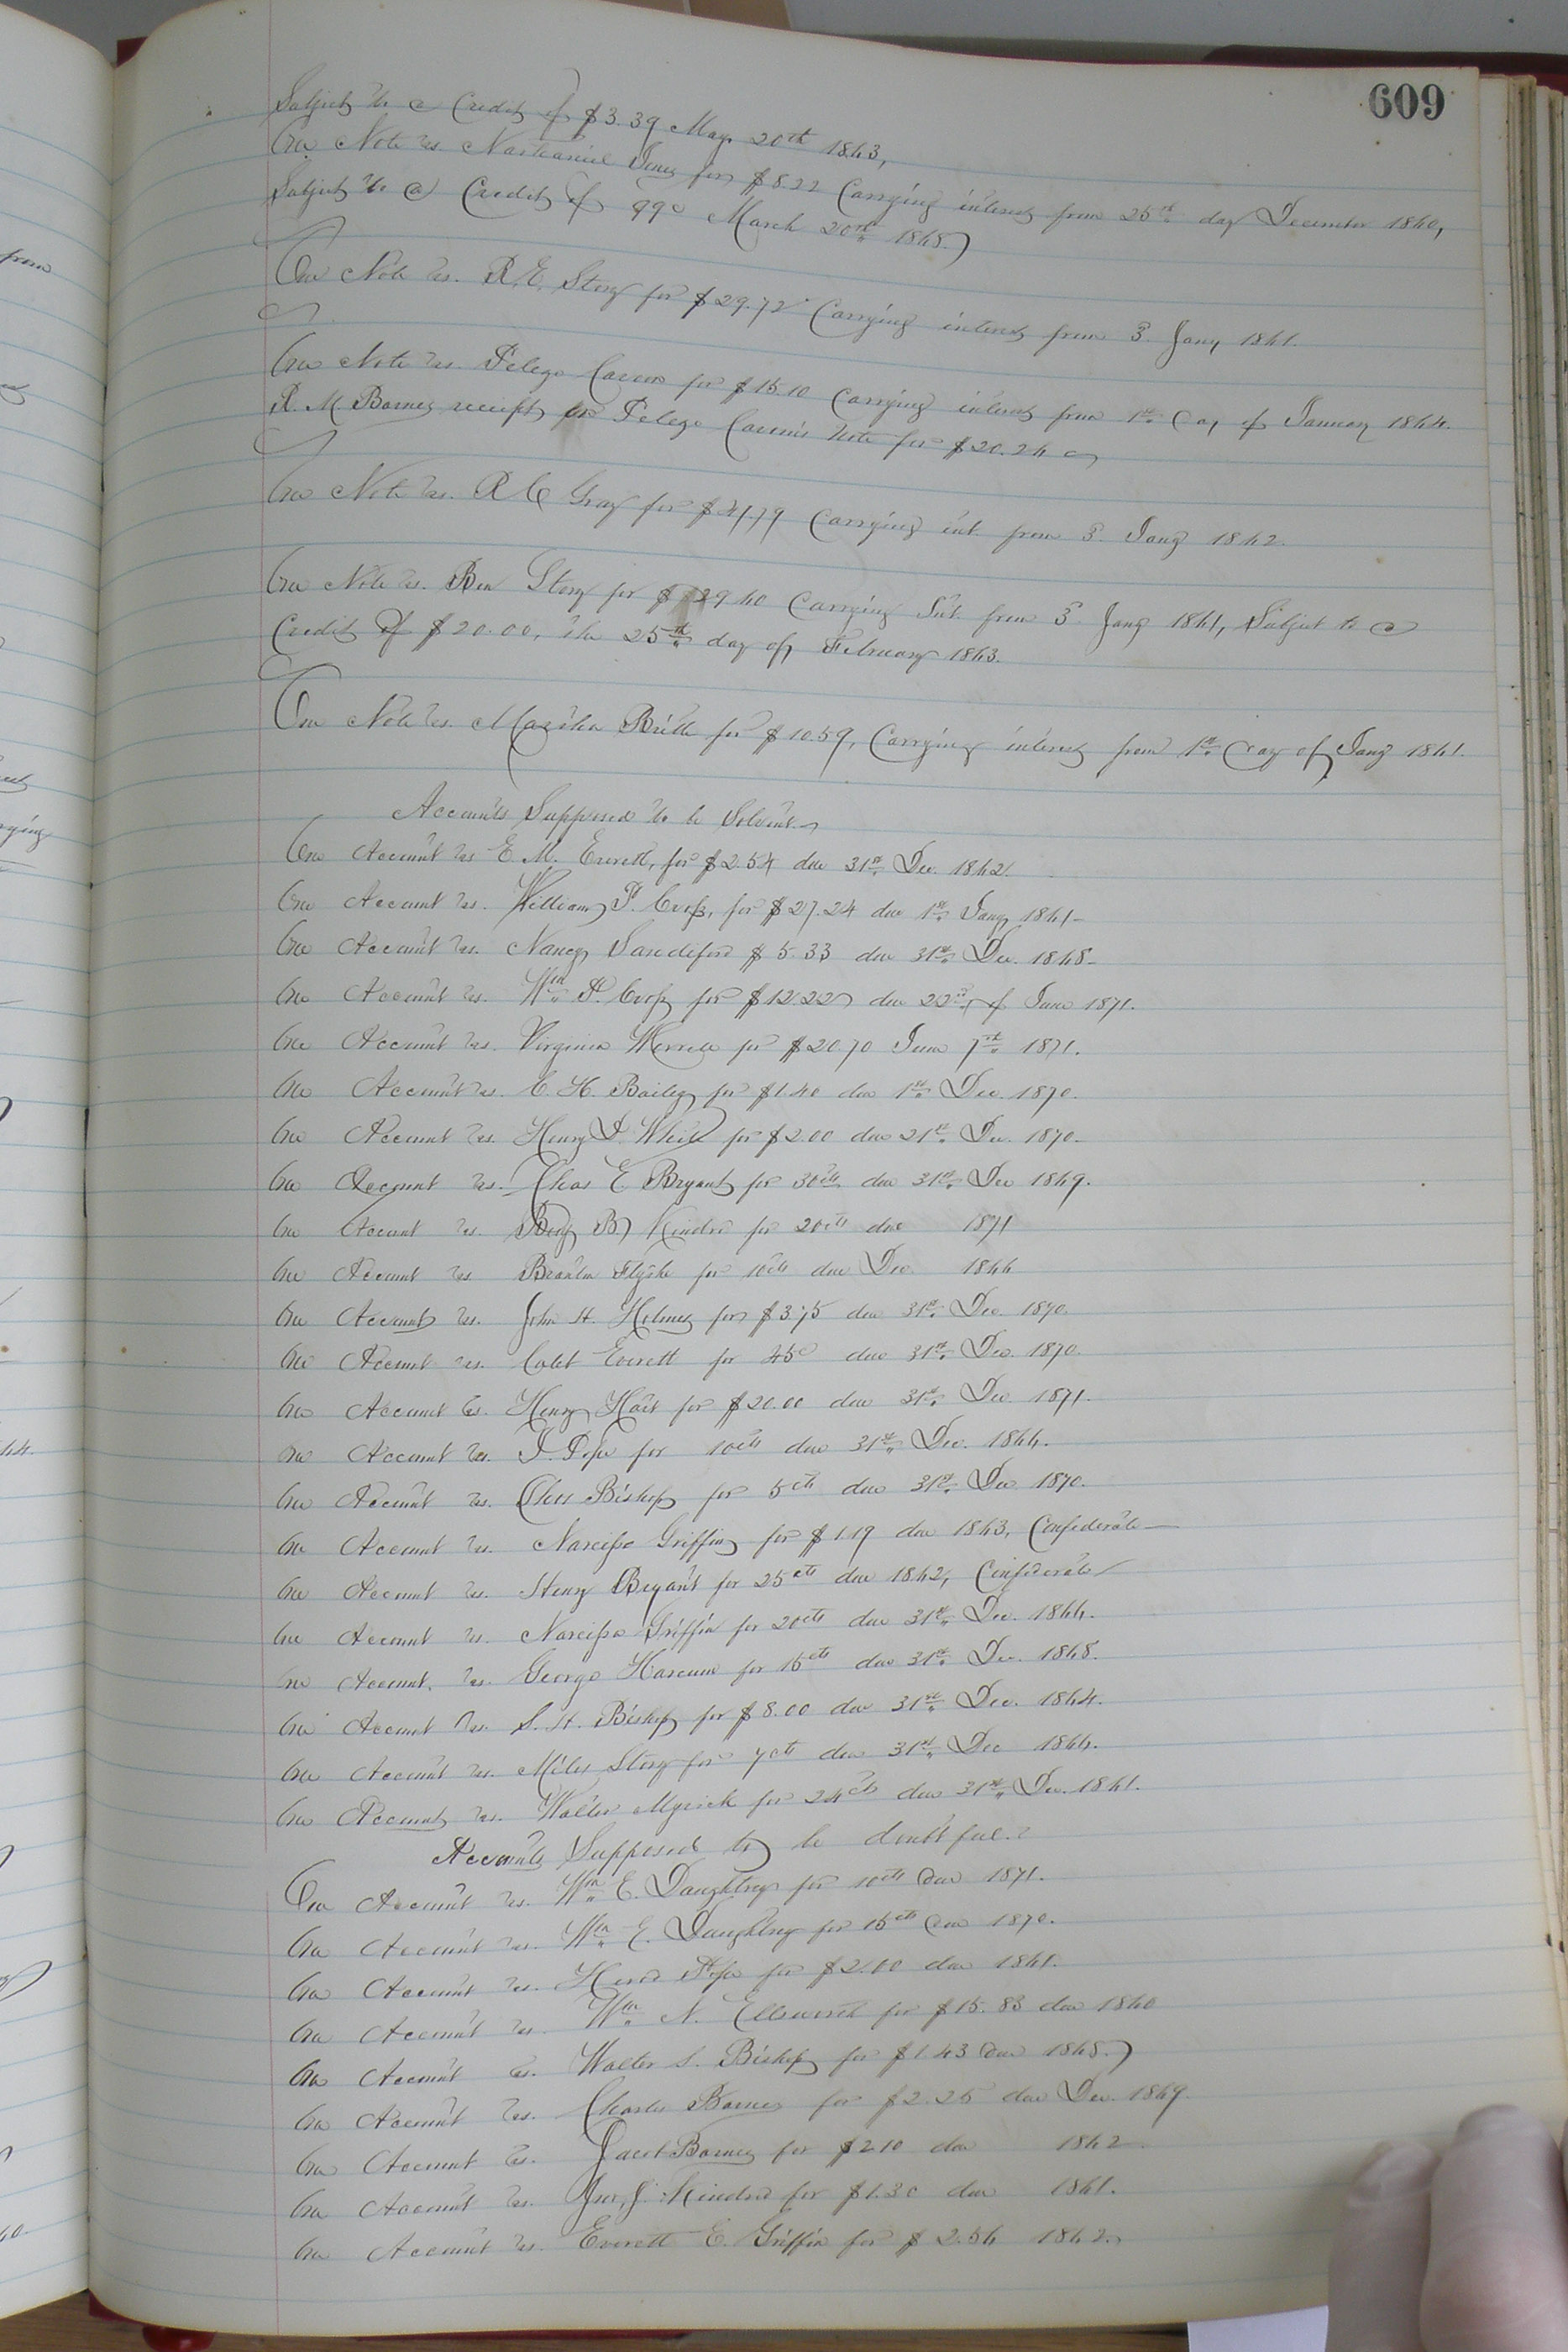 609
Subject to a Credit of $3.39 May 20th 1863,
One Note vs. Nathaniel Jones for $8.22 Carrying interest from 25th day December 1860,
Subject to a Credit of 99c March 20th 1868.
One Note vs. R. E. Story for $29.72 Carrying interest from 3 Jany 1861.
One Note vs. Pelego for $15.10 Carrying interest from 1st Day of January 1864.
R. M. Barnes receipt for Pelego note for $20.26
One Note vs. R C Gray for Carrying int. from 3 Jany 1862.
One Note vs. Ben Story for $29.60 Carrying Int. from 3 Jany 1861, Subject to a
Credit of $20.00, the 25th day of February 1863.
One Note vs. Martha Britt for $10.59, Carrying interest from 1st Day of Jany 1861.
Accounts Supposed to be Solvent
One Account vs E. M. Everett, for $2.54 due 31st Dec. 1862
One Account vs. William P. for $27.24 due 1st Jany 1861
One Account vs. Nancy Sandeford $5.33 due 31st Dec. 1868
One Account vs. Wm P. for $12.22 due 22nd of June 1871.
One Account vs. Virginia for $20.70 June 7th 1871.
One Account vs. C. H. Bailey for $1.40 due 1st Dec. 1870.
One Account vs. Henry White for $2.00 due 21st Dec. 1870
One Account vs. Chas E. Bryant for 30cts due 31st Dec 1869.
One Account vs. Benj B. Kindred for 20cts due 1871
One Account vs for 10cts due Dec. 1866
One Account vs. John H. Holmes for $3.75 due 31st Dec. 1870.
One Account vs. Caleb Everett for 45c due 31st Dec. 1870.
One Account vs. Henry Hart for $20.00 due 31st Dec. 1871.
One Account vs. J. Pope for 10cts due 31st Dec. 1866.
One Account vs. Chas Bishop for 5cts due 31st Dec 1870.
One Account vs. Narcissa Griffin for $1.19 due 1863, Confederate
One Account vs. Henry Bryant for 25cts due 1862, Confederate
One Account vs. Narcissa Griffin for 20cts due 31st Dec. 1866.
One Account. vs. George Harcum for 15cts due 31st Dec. 1868.
One Account vs. S. H. Bishop for $8.00 due 31st Dec. 1864.
One Account vs. Miles Story for 70cts due 31st Dec 1866.
One Account vs. Walter Myrick for 24cts due 31st Dec. 1861.
Accounts Supposed to be doubtful.
One Account vs. Wm E. Daughtrey for 10cts due 1871.
One Account vs. Wm E. Daughtrey for 15cts due 1870.
One Account vs. Pope for $2.00 due 1861.
One Account vs. Wm N. Ellsworth for $15.83 due 1860
One Account vs. Walter S. Bishop for $1.43 due 1868.
One Account vs. Charles Barnes for $2.25 due Dec. 1869.
One Account vs. Jacob Barnes for $2.10 due 1862
One Account vs. Jno. J. Kindred for $1.30 due 1861.
One Account vs. Everett E. Griffin for $2.56 1862.